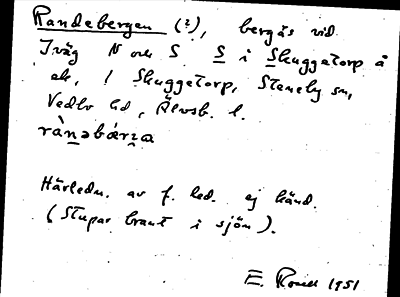 Randebergen (?), bergås vid
Iväg N och S. S i Skuggetorp å
ek, 1 Skuggetorp, Steneby sn,
Vedbo hd, Älvsb. l.
Härledn. av f. led. ej känd.
(Stupar brant i sjön).
E. 1951